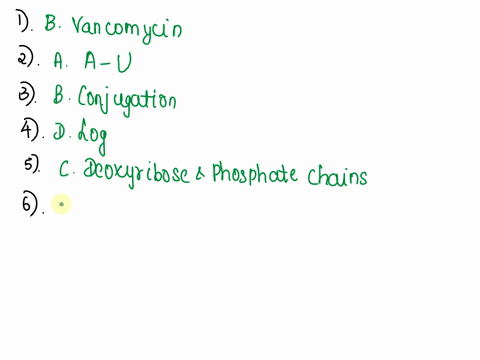 1). B. Vancomycin
2). A. A-U
3). B. Conjugation
4). D. Log
5). C. Deoxyribose & Phosphate chains
6).